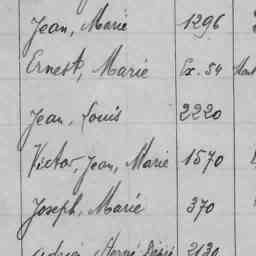 Jean, Marie 1296
Ernest, Marie Ex. 54
Jean, Louis 2220
Victor, Jean, Marie 1570
Joseph, Marie 370
2130